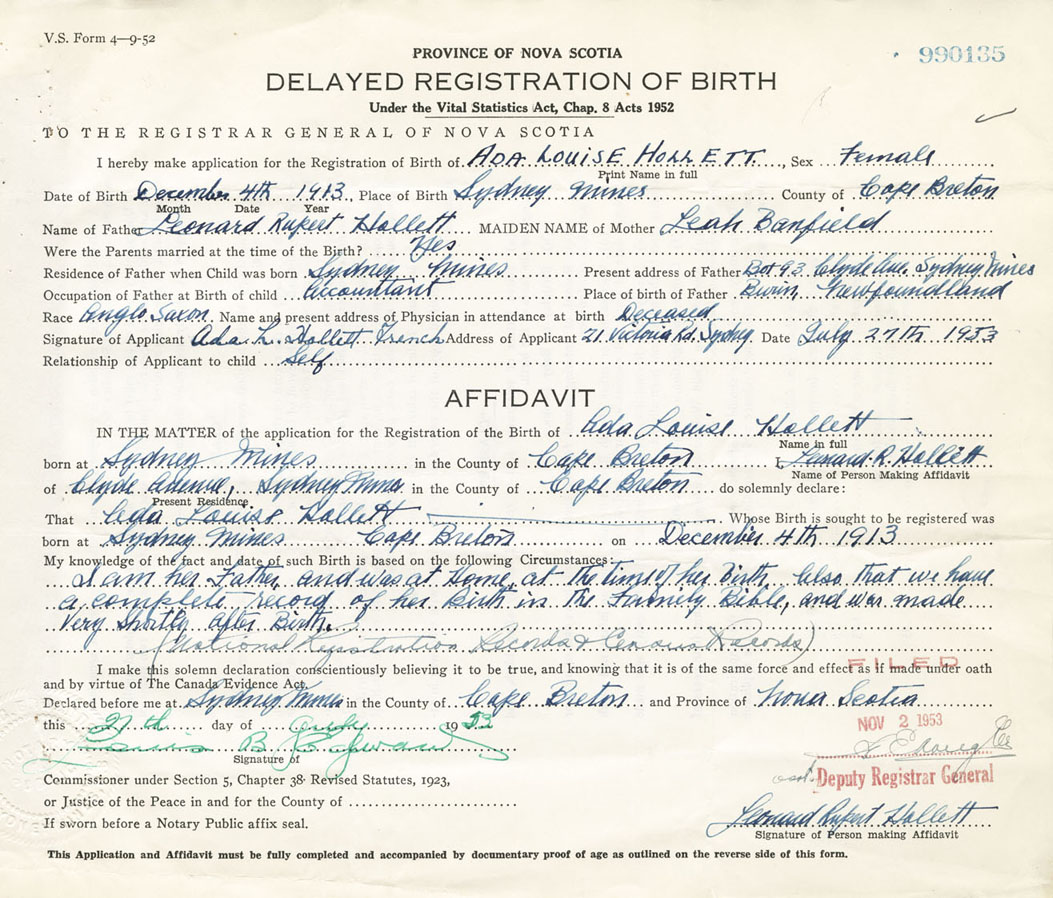 V.S. Form 4—9-52
990135
PROVINCE OF NOVA SCOTIA
DELAYED REGISTRATION OF BIRTH
Under the Vital Statistics Act, Chap. 8 Acts 1952
TO THE REGISTRAR GENERAL OF NOVA SCOTIA
I hereby make application for the Registration of Birth of ADA LOUISE HOLLETT, Sex Female
Print Name in full
Date of Birth December 4th 1913, Place of Birth Sydney Mines County of Cape Breton
Month Date Year
Name of Father Leonard Rupert Hollett MAIDEN NAME of Mother Leah Banfield
Were the Parents married at the time of the Birth? Yes
Residence of Father when Child was born Sydney Mines Present address of Father Box 93 Clyde Ave. Sydney Mines
Occupation of Father at Birth of child Accountant Place of birth of Father Burin, Newfoundland
Race Anglo Saxon. Name and present address of Physician in attendance at birth Deceased
Signature of Applicant Ada L. Hollett French Address of Applicant 21 Victoria Rd. Sydney Date July 27th 1953
Relationship of Applicant to child Self
AFFIDAVIT
IN THE MATTER of the application for the Registration of the Birth of Ada Louise Hollett
Name in full
born at Sydney Mines in the County of Cape Breton I, Leonard R. Hollett
Name of Person Making Affidavit
of Clyde Avenue, Sydney Mines in the County of Cape Breton do solemnly declare:
Present Residence
That Ada Louise Hollett Whose Birth is sought to be registered was
born at Sydney Mines Cape Breton on December 4th 1913
My knowledge of the fact and date of such Birth is based on the following Circumstances:
I am her Father, and was at Home, at the time of her Birth. Also that we have
a complete record of her Birth in the Family Bible, and was made
very shortly after Birth.
(National Registration Records & Census Records)
I make this solemn declaration conscientiously believing it to be true, and knowing that it is of the same force and effect as if made under oath
FILED
and by virtue of The Canada Evidence Act.
Declared before me at Sydney Mines in the County of Cape Breton and Province of Nova Scotia
this 27th day of July 1953
NOV 2 1953
Signature of
Commissioner under Section 5, Chapter 38 Revised Statutes, 1923,
Deputy Registrar General
or Justice of the Peace in and for the County of
Leonard Rupert Hollett
If sworn before a Notary Public affix seal.
Signature of Person making Affidavit
This Application and Affidavit must be fully completed and accompanied by documentary proof of age as outlined on the reverse side of this form.